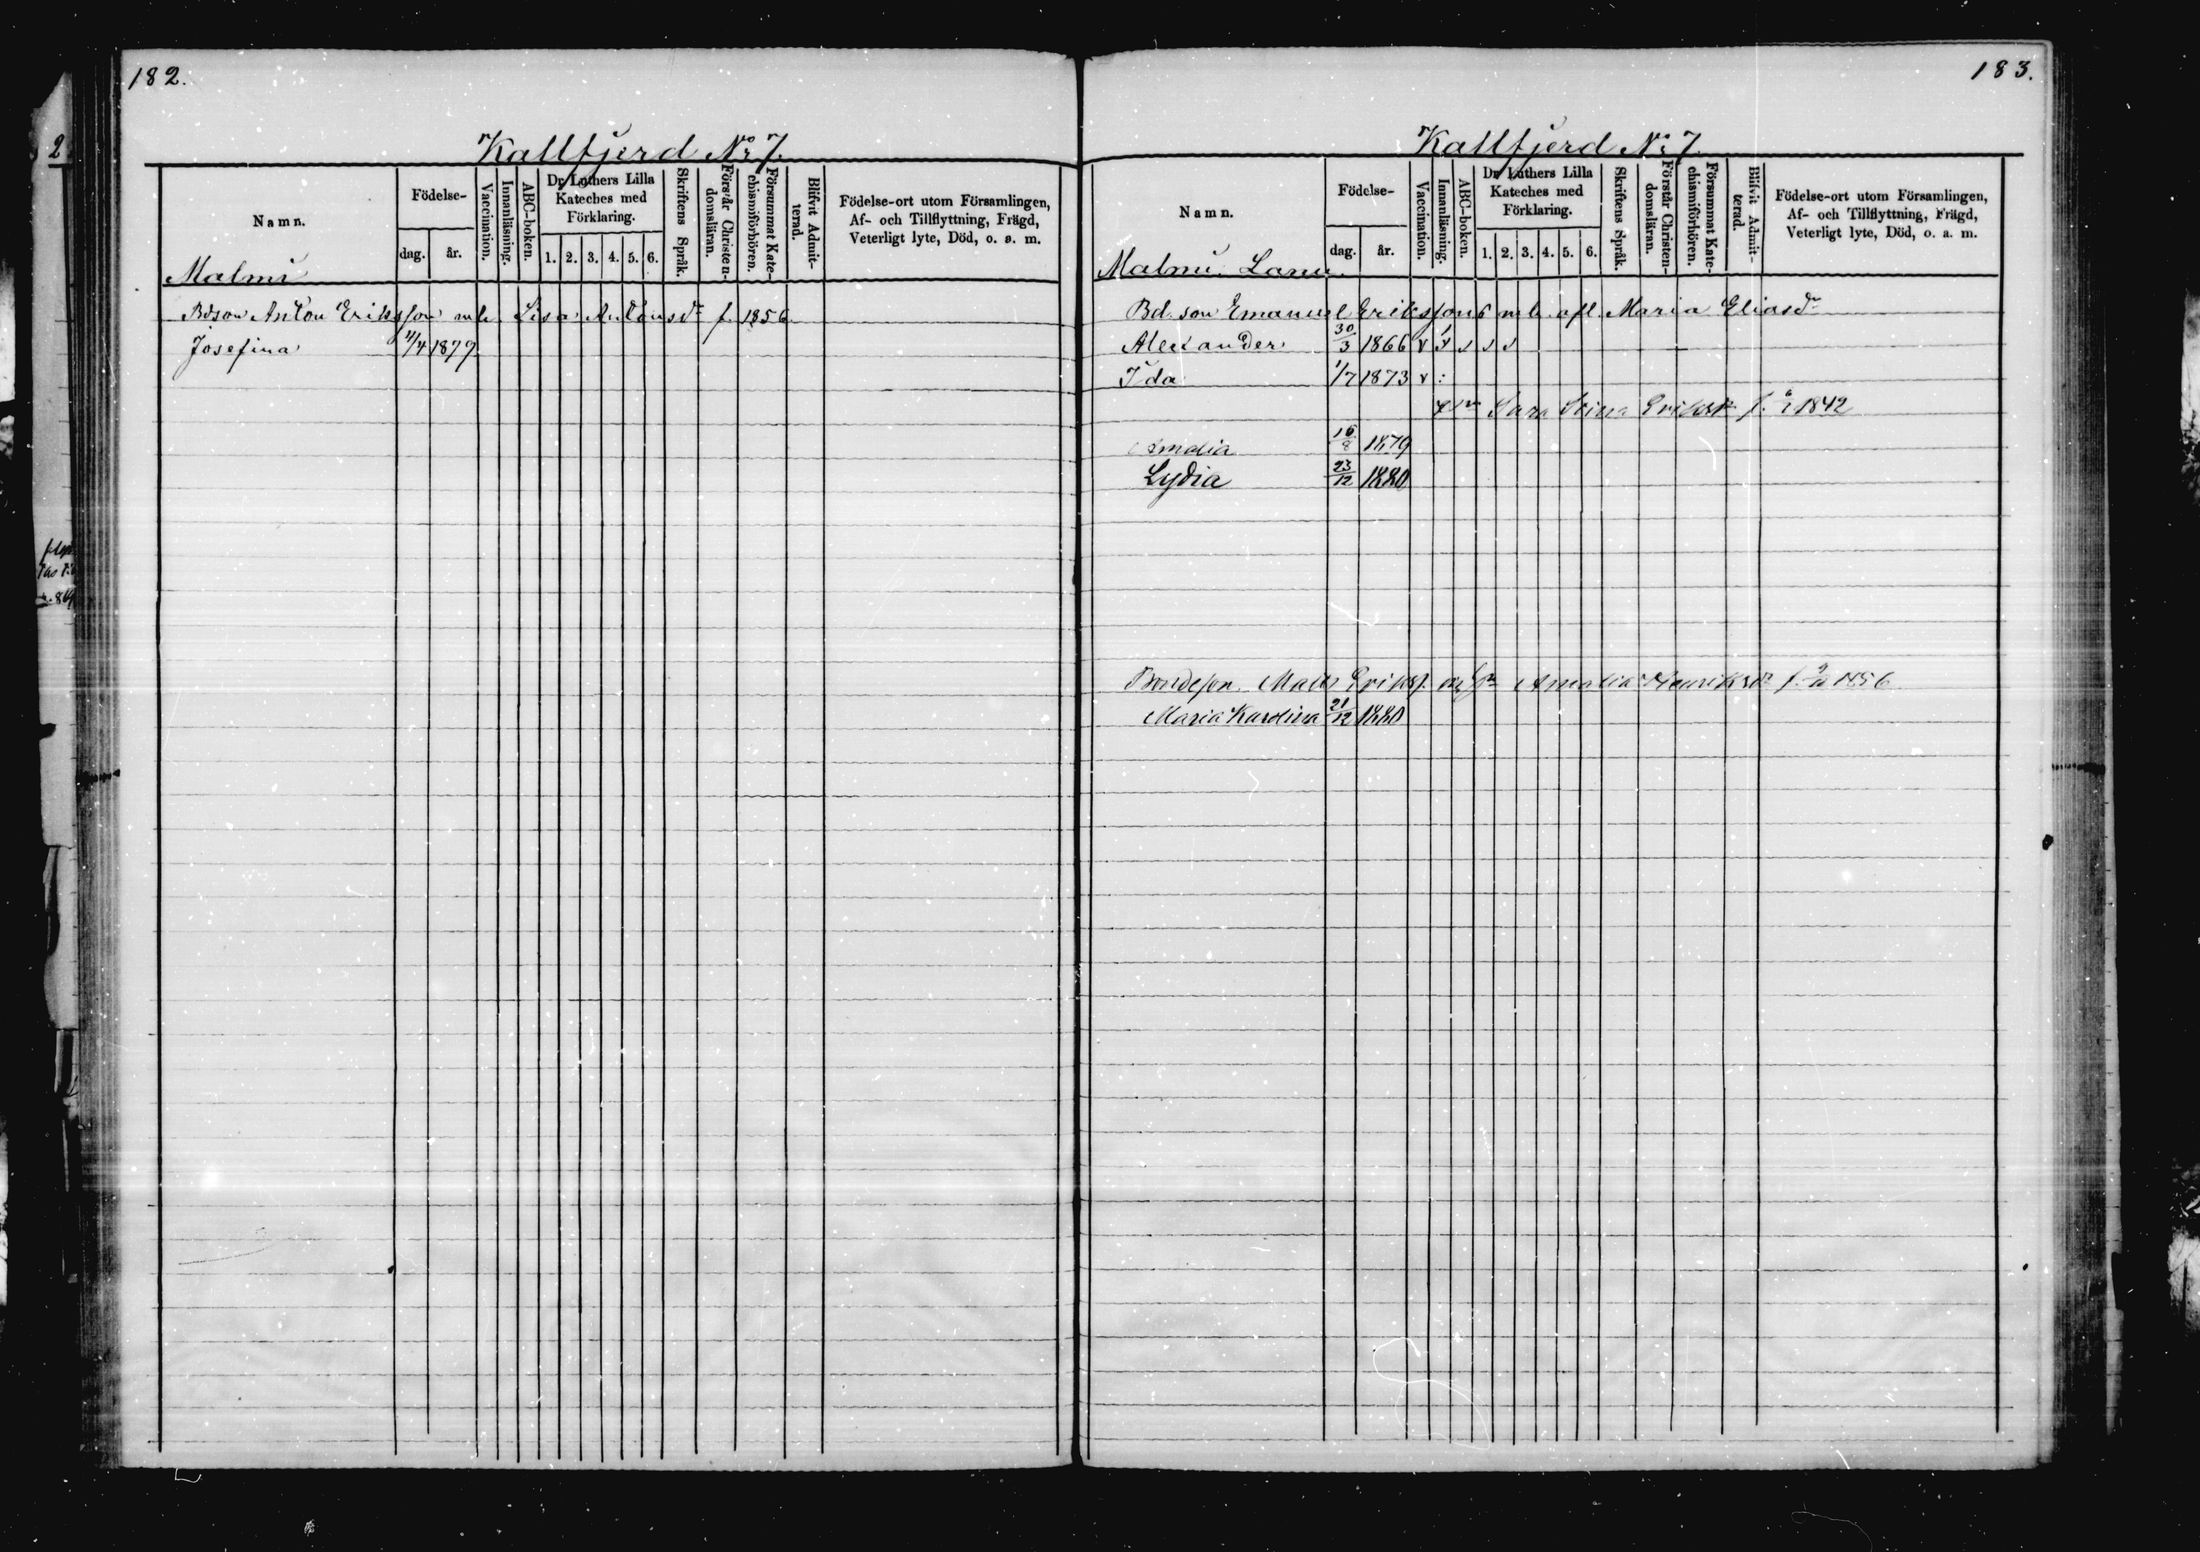 182.
Kallfjerd No 7.
Namn.
Födelse-
dag.
år.
Vaccination.
Innanläsning.
ABC-boken.
Dr Luthers Lilla
Kateches med
Förklaring.
1. 2. 3. 4. 5. 6.
Skriftens Språk.
Förstår Christen-
domsläran.
Försummat Kate-
chismiförhören.
Blifvit Admit-
terad.
Födelse-ort utom Församlingen,
Af- och Tillflyttning, Frägd,
Veterligt lyte, Död, o. s. m.
Malmi
Bdson Anton Eriksson mh. Lisa Antonsdr f. 1856
Josefina 11/4 1879
183.
Kallfjerd No 7.
Namn.
Födelse-
dag.
år.
Vaccination.
Innanläsning.
ABC-boken.
Dr Luthers Lilla
Kateches med
Förklaring.
1. 2. 3. 4. 5. 6.
Skriftens Språk.
Förstår Christen-
domsläran.
Försummat Kate-
chismiförhören.
Blifvit Admit-
terad.
Födelse-ort utom Församlingen,
Af- och Tillflyttning, Frägd,
Veterligt lyte, Död, o. a. m.
Malmi
Bd. son Emanuel Erikssons mh. afl. Maria Eliasdr
Alexander 30/3 1866 v
Ida 1/7 1873 v :
Sara Stina 1842
Amalia 16/8 1879
Lydia 23/12 1880
Bondeson Matts Eriks. Amalia Henriksdr f. 1856
Maria Karolina 21/12 1880